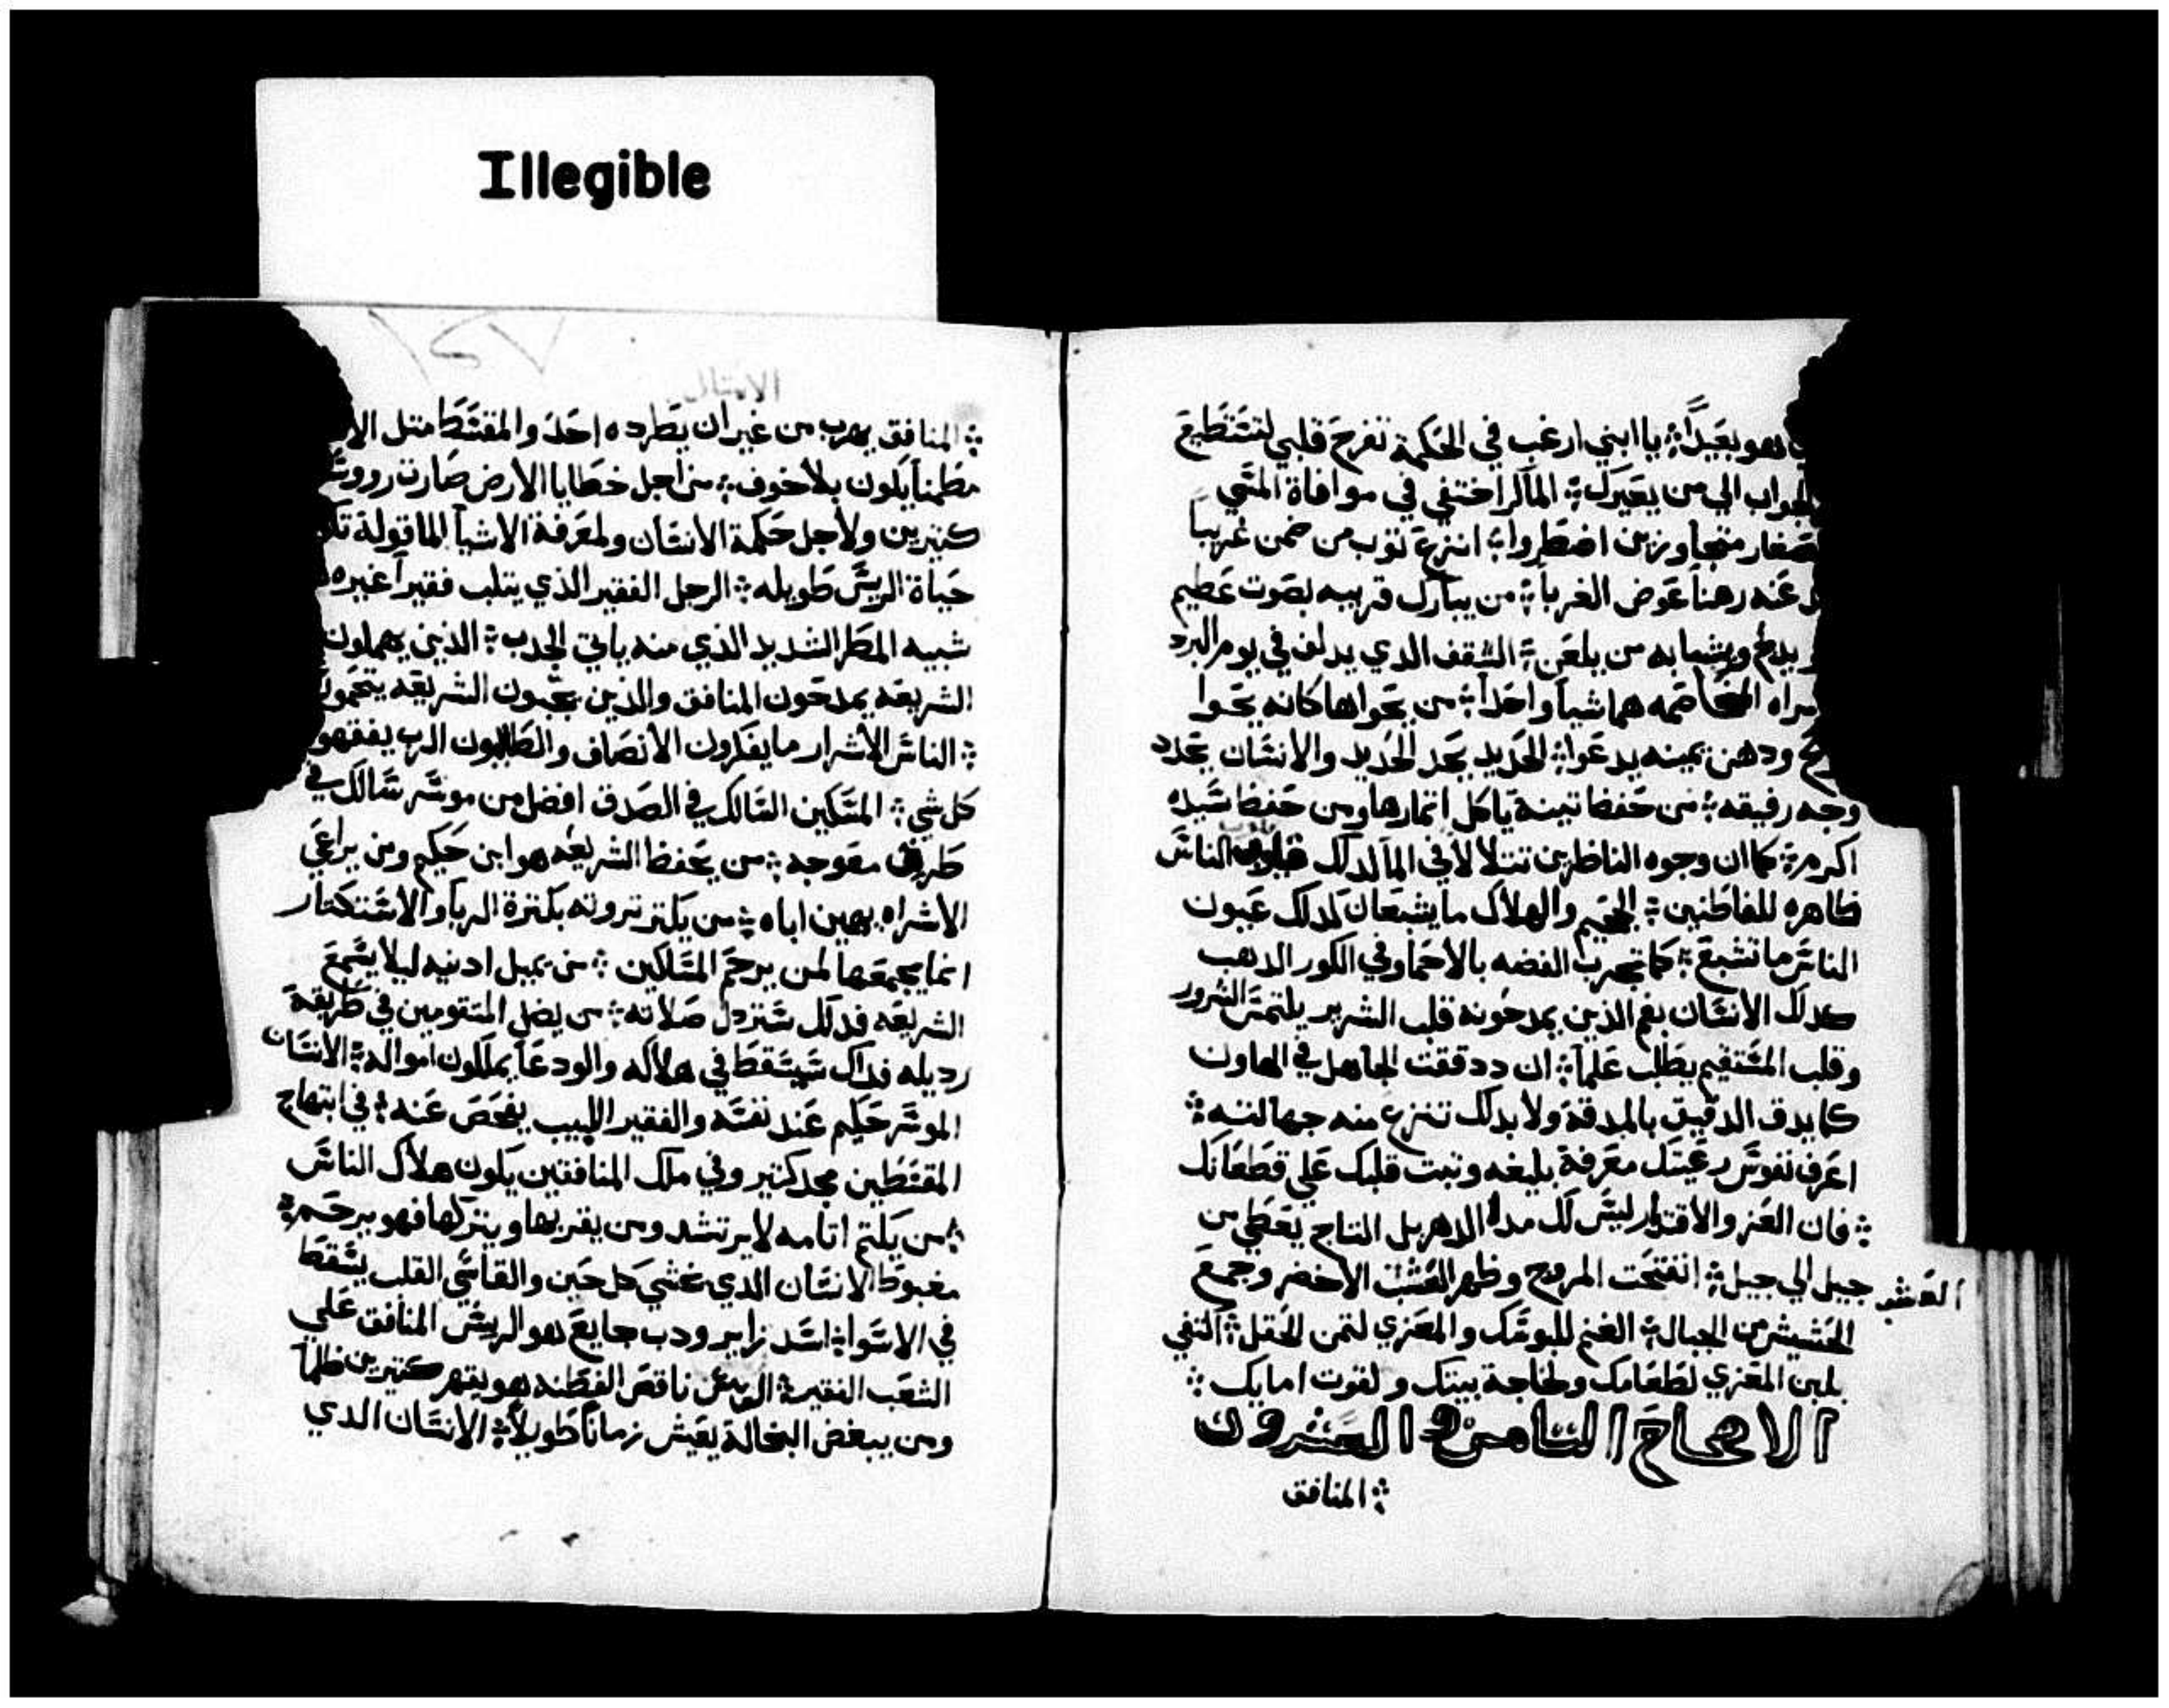 Illegible
وهو بعيدًا ؞ يا ابني ارغب في الحكمة تفرح قلبي لتستطيع
الجواب الي من يعيرك ؞ الماكر اختفي في موافاة المسي
الصغار متجاوزين اضطروا ؞ انزع توب من ضمن غريباً
عنه رهناً عوض الغربا ؞ من يبارك قريبه بصوت عظيم
ويشبا به من يلعن ؞ السقف الدي يدلف في يوم البرد
المخاصمه هما شياً واحداً ؞ من يحواها كانه يحوا
ودهن يمينه يدعوا ؞ الحديد يحد الحديد والانسان يحدد
وجه رفيقه ؞ من حفظ تينة ياكل اتمارها ومن حفظ سيده
اكرم ؞ كما ان وجوه الناظرين تتلالا في الما لدلك قلوب الناس
ظاهره للفاطنين ؞ الجحيم والهلاك ما يشبعان لدلك عيون
الناس ما تشبع ؞ كما تجرب الفضه بالاحما وفي الكور الدهب
كدلك الانسان بفم الذين يمدحونه قلب الشرير يلتمس الشرور
وقلب المستقيم يطلب علماً ؞ ان ددققت الجاهل في الهاون
كما يدق الدقيق بالمدقة ولا بدلك تنزع منه جهالته ؞
اعرف نفوس رعيتك معرفة بليغه وتبت قلبك علي قطعانك
؞ فان العز والاقتدار ليس لك مدا الدهر بل التاج يعطي من
جيل الي جيل ؞ انفتحت المروج وظهر العشب الاخضر وجمع
العشب
الحشيش من الجبال ؞ الغنم للبوسك والمعزي لتمن الحقل ؞ اكتفي
بلبن المعزي لطعامك ولحاجة بيتك ولقوت امايك ؞
الاصحاح التامن والعشرون
؞ المنافق
الامتال
؞ المنافق يهرب من غير ان يطرده احد والمقسط متل الا
مطمناً يكون بلا خوف ؞ من اجل خطايا الارض صارت روس
كتيرين ولاجل حكمة الانسان ولمعرفة الاشيا الماقولة
حياة الريس طويله ؞ الرجل الفقير الذي يتلب فقيراً غيره
شبيه المطر الشديد الذي منه ياتي الجدب ؞ الذين يهملون
الشريعه يمدحون المنافق والذين يحبون الشريعه
؞ الناس الاشرار ما يفكرون الانصاف والطالبون الرب يفقهو
كل شي ؞ المسكين السالك في الصدق افضل من موسر سالك في
طرق معوجه ؞ من يحفظ الشريعه هو ابن حكيم ومن يراعي
الاشراه يهين اباه ؞ من يكتر تروته بكترة الربا والاستكتار
انما يجمعها لمن يرحم المساكين ؞ من يميل ادنيه ليلا يسمع
الشريعه فدلك ستردل صلاته ؞ من يضل المتقومين في طريقة
رديله فداك سيسقط في هلاكه والودعا يملكون امواله ؞ الانسان
الموسر حكيم عند نفسه والفقير اللبيب يفحص عنه ؞ في ابتهاج
المقسطين مجد كتير وفي ملك المنافقين يكون هلاك الناس
؞ من يكتم اتامه لا يرتشد ومن يقر بها ويتركها فهو يرحم ؞
مغبوط الانسان الدي يخشي كل حين والقاسي القلب يسقط
في الاسوا ؞ اسد زاير ودب جايع هو الريس المنافق علي
الشعب الفقير ؞ الريس ناقص الفطنه هو يقهر كتيرين ظلماً
ومن يبغض البخالة يعيش زماناً طويلاً ؞ الانسان الدي